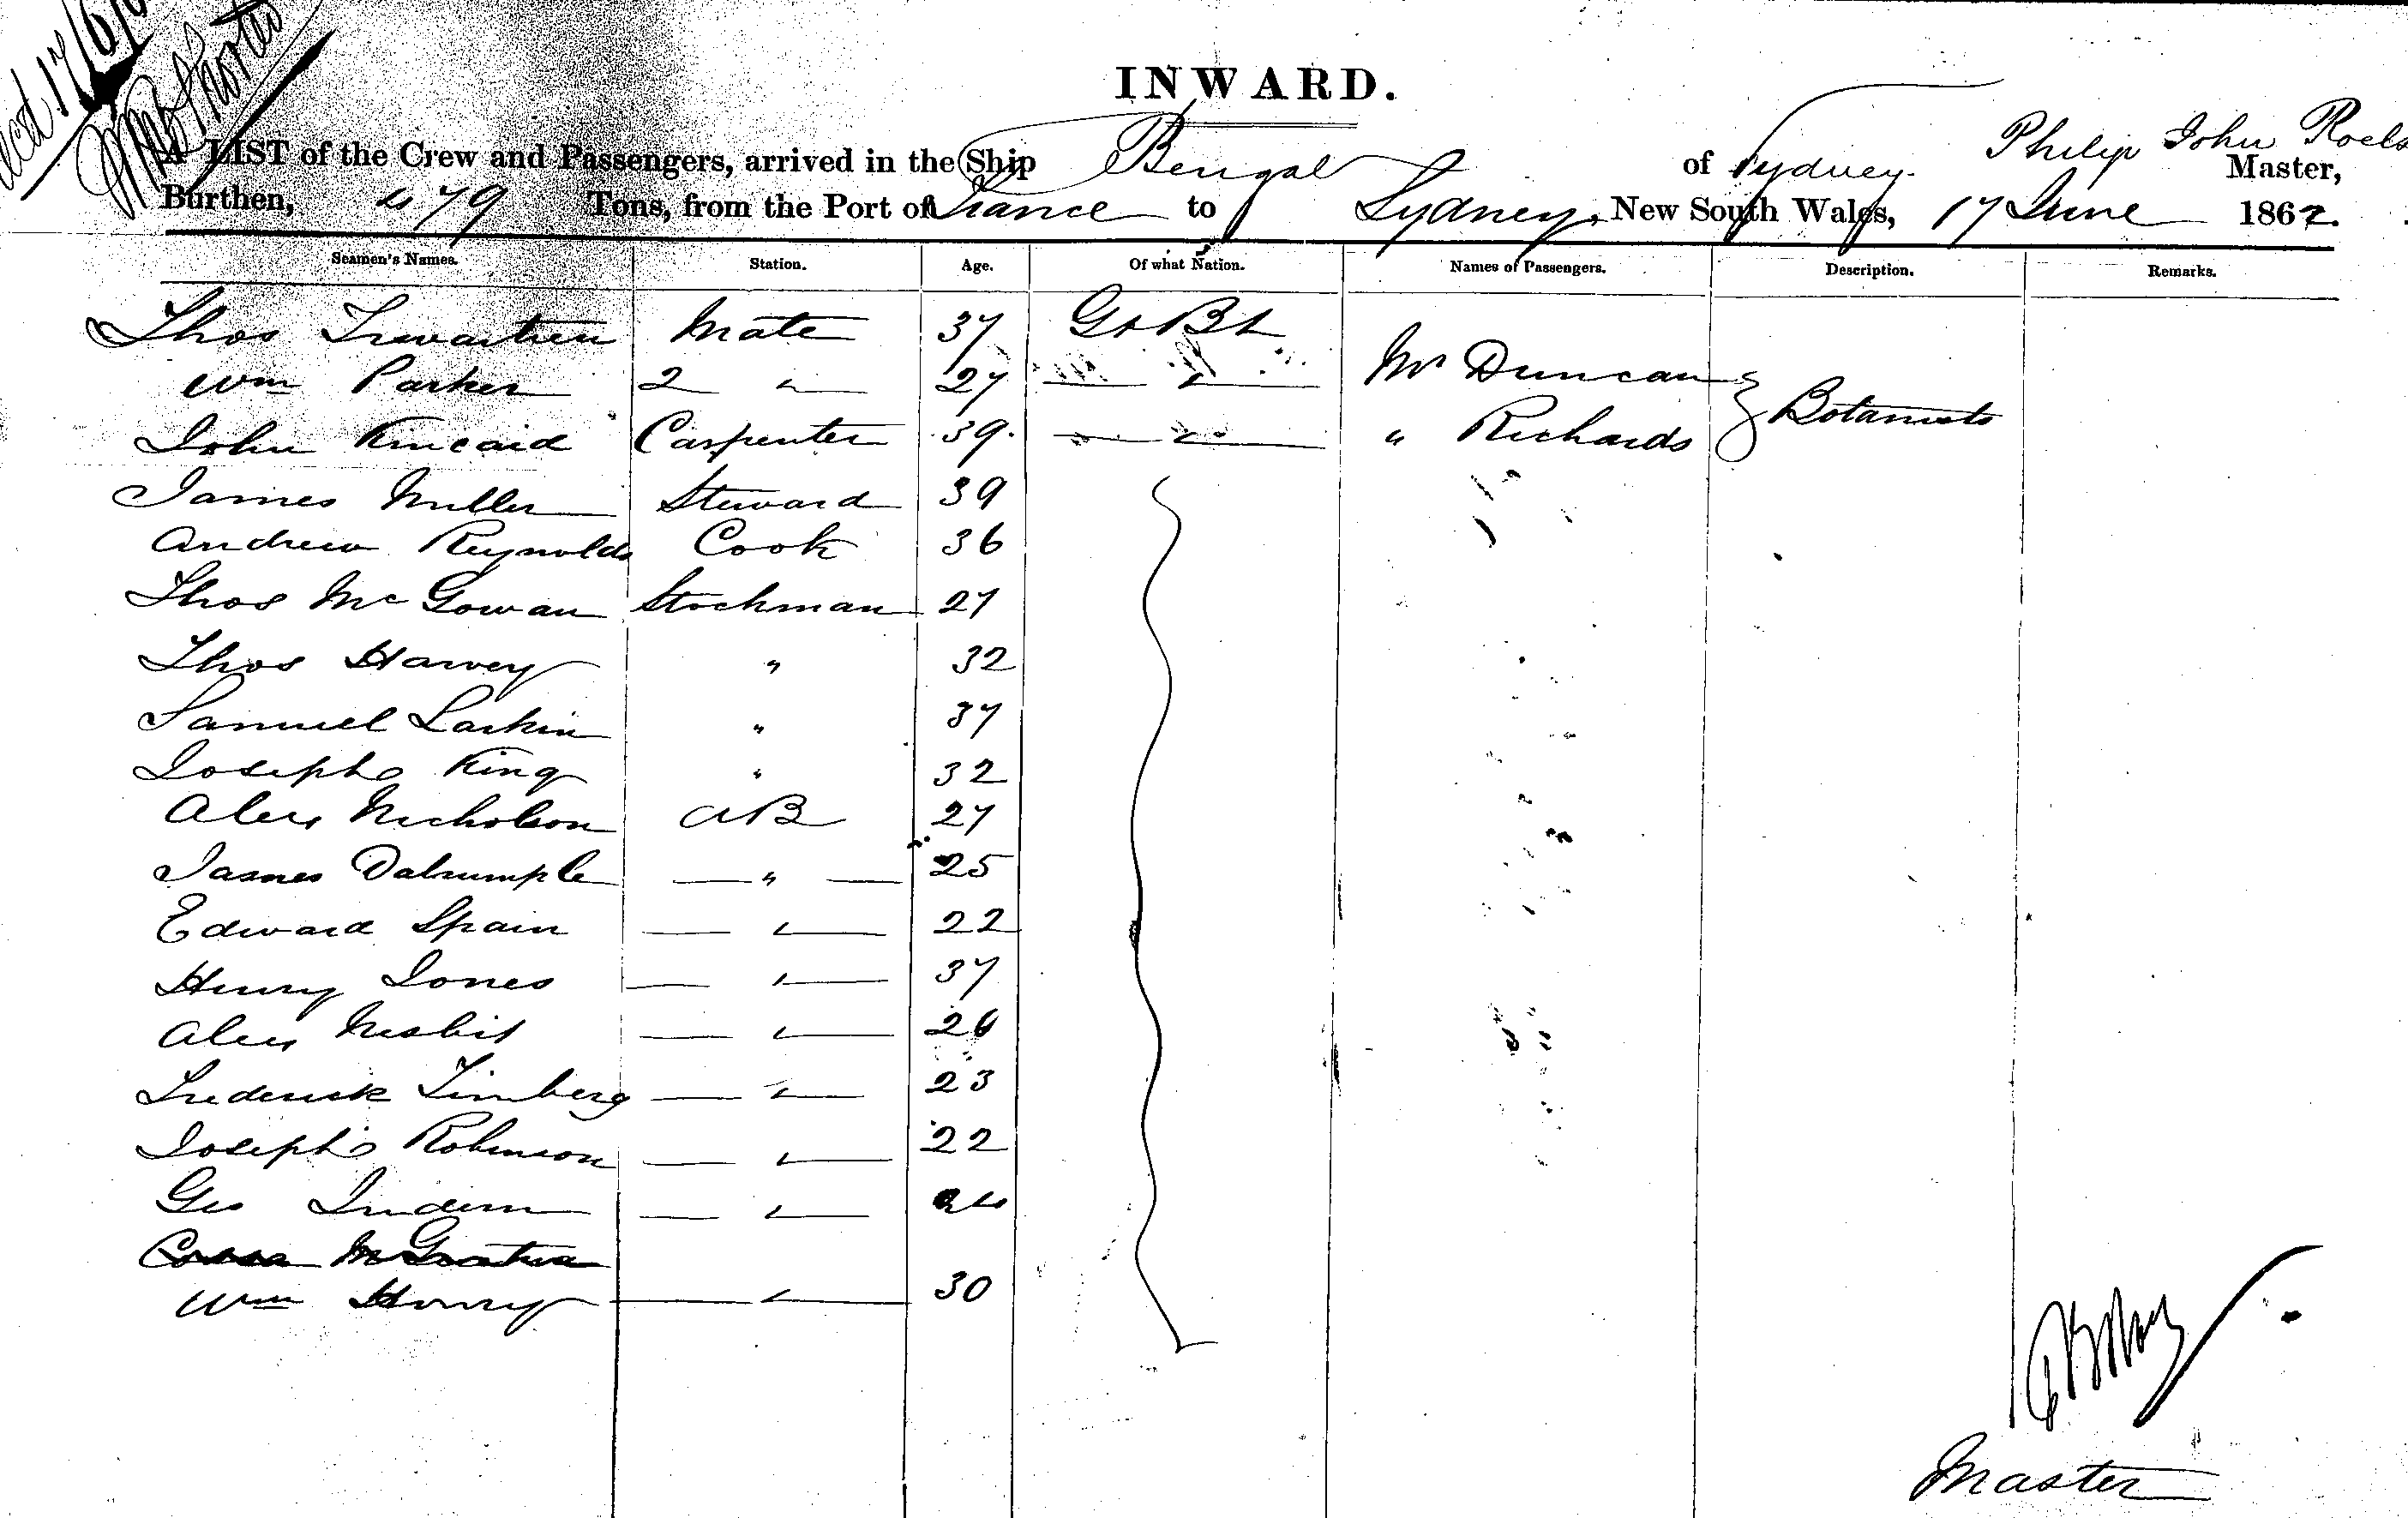 INWARD.
A LIST of the Crew and Passengers, arrived in the Ship Bengal of Sydney Philip John Roels Master,
Burthen, 479 Tons, from the Port of France to Sydney, New South Wales, 17 June 1862.
Seamen's Names. Station. Age. Of what Nation. Names of Passengers. Description. Remarks.
Thos Mate 37 Gt Bt
Wm Parker 2 " 27 " Mr Duncan
John Kincaid Carpenter 39 " " Richards Botanists
James Miller Steward 39
Andrew Reynolds Cook 36
Thos McGowan Stockman 27
Thos Harvey " 32
Samuel Larkin " 37
Joseph King " 32
Alex Nicholson AB 27
James Dalrumple " 25
Edward Spain " 22
Henry Jones " 37
Alex Nesbit "
Frederick Timberg " 23
Joseph Robinson " 22
Geo " 24
Wm Henry " 30
Master